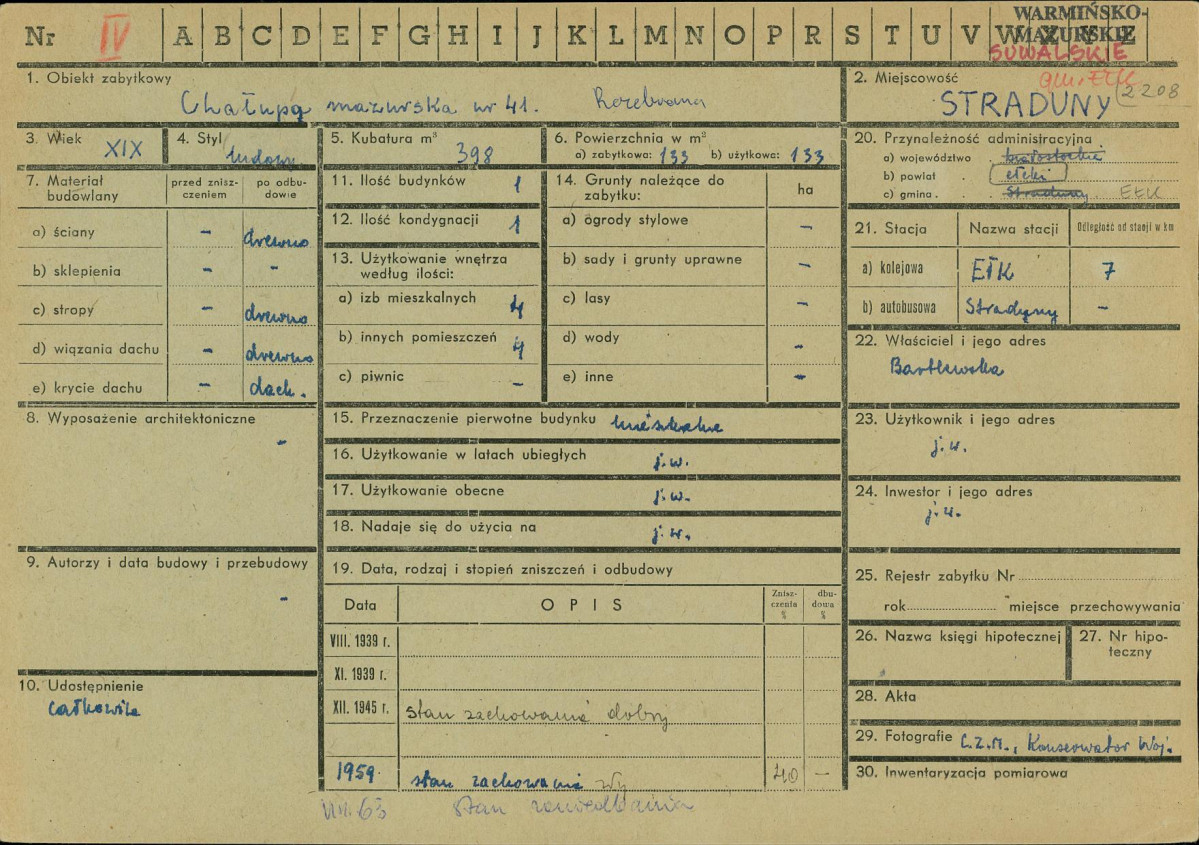 Nr IV A B C D E F G H I J K L M N O P R S T U V W
WARMIŃSKO-
MAZURSKIE
SUWALSKIE
1. Obiekt zabytkowy
Chałupa mazurska nr 41. Rozebrana
2. Miejscowość gm. Ełk
STRADUNY 2208
3. Wiek XIX
4. Styl ludowy
5. Kubatura m³ 398
6. Powierzchnia w m²
a) zabytkowa: 133 b) użytkowa: 133
20. Przynależność administracyjna
a) województwo białostockie
b) powiat ełcki
c) gmina Straduny EŁK
7. Materiał budowlany
przed znisz-czeniem
po odbu-dowie
a) ściany - drewno
b) sklepienia - -
c) stropy - drewno
d) wiązania dachu - drewno
e) krycie dachu - dach.
11. Ilość budynków 1
12. Ilość kondygnacji 1
13. Użytkowanie wnętrza
według ilości:
a) izb mieszkalnych 4
b) innych pomieszczeń 4
c) piwnic -
14. Grunty należące do
zabytku: ha
a) ogrody stylowe -
b) sady i grunty uprawne -
c) lasy -
d) wody -
e) inne -
21. Stacja Nazwa stacji Odległość od stacji w km
a) kolejowa EŁK 7
b) autobusowa Straduny -
22. Właściciel i jego adres
8. Wyposażenie architektoniczne
-
15. Przeznaczenie pierwotne budynku mieszkalne
16. Użytkowanie w latach ubiegłych j.w.
17. Użytkowanie obecne j.w.
18. Nadaje się do użycia na j.w.
23. Użytkownik i jego adres
j.w.
24. Inwestor i jego adres
j.w.
9. Autorzy i data budowy i przebudowy
-
19. Data, rodzaj i stopień zniszczeń i odbudowy
Data OPIS Znisz-czenia % dbu-dowa %
VIII. 1939 r.
XI. 1939 r.
XII. 1945 r. stan zachowania dobry
1959 stan zachowania 40 -
63 stan zaniedbania
10. Udostępnienie
całkowite
25. Rejestr zabytku Nr
rok miejsce przechowywania
26. Nazwa księgi hipotecznej
27. Nr hipo-
teczny
28. Akta
29. Fotografie C.Z.M., Konserwator Woj.
30. Inwentaryzacja pomiarowa